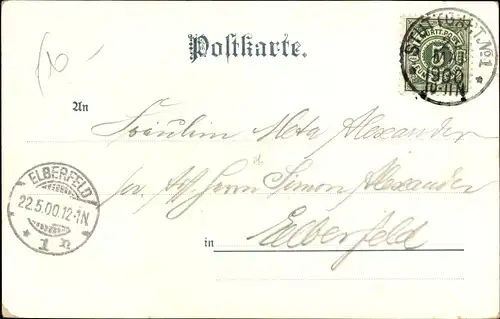 Postkarte.
STUTTGART. No 1
5
1900
10-11N
An
Fräulein Meta Alexander
Herrn Simon Alexander
in Elberfeld
ELBERFELD
22.5.00.12-1N
* 1 n *